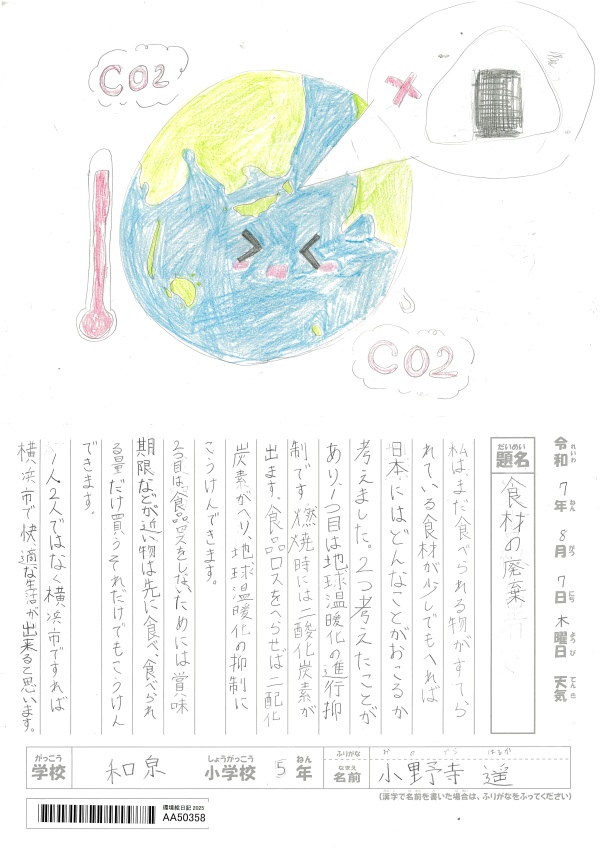 CO2
CO2
令和 7年 8月 7日 木曜日 天気
れいわ ねん がつ にち ようび てんき
だいめい
題名
食材の廃棄
私は、まだ食べられる物がすてら
れている食材が少しでもへれば
日本にはどんなことがおこるか
考えました。2つ考えたことが
あり、1つ目は地球温暖化の進行抑
制です。燃焼時には二酸化炭素が
出ます。食品ロスをへらせば二配化
炭素がへり、地球温暖化の抑制に
こうけんできます。
2つ目は、食品ロスをしないためには賞味
期限などが近い物は先に食べ、食べられ
る量だけ買うそれだけでもこうけん
できます。
1人2人ではなく横浜市ですれば
横浜市で快適な生活が出来ると思います。
がっこう
学校
和泉
しょうがっこう
小学校
5
ねん
年
ふりがな
おのでらはるか
なまえ
名前
小野寺 遥
(漢字で名前を書いた場合は、ふりがなをふってください)
環境絵日記2025
AA50358